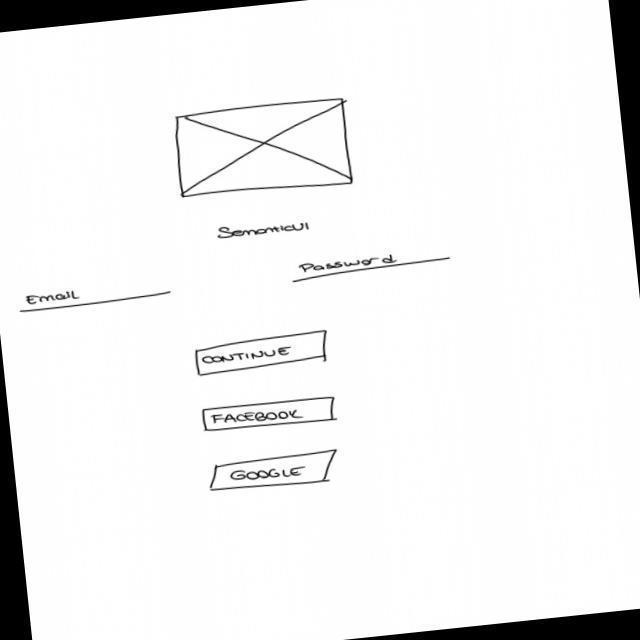 SemanticUI
Email
Password
CONTINUE
FACEBOOK
GOOGLE